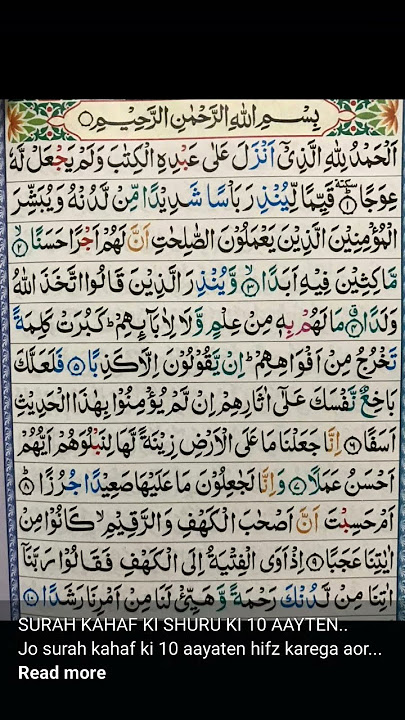 بِسْمِ اللهِ الرَّحْمٰنِ الرَّحِيْمِ
اَلْحَمْدُ لِلّٰهِ الَّذِيْٓ اَنْزَلَ عَلٰى عَبْدِهِ الْكِتٰبَ وَلَمْ يَجْعَلْ لَّهٗ
عِوَجًا ۜ ۱ قَيِّمًا لِّيُنْذِرَ بَاْسًا شَدِيْدًا مِّنْ لَّدُنْهُ وَيُبَشِّرَ
الْمُؤْمِنِيْنَ الَّذِيْنَ يَعْمَلُوْنَ الصّٰلِحٰتِ اَنَّ لَهُمْ اَجْرًا حَسَنًا ۲
مَّاكِثِيْنَ فِيْهِ اَبَدًا ۳ وَّيُنْذِرَ الَّذِيْنَ قَالُوا اتَّخَذَ اللهُ
وَلَدًا ۴ مَا لَهُمْ بِهٖ مِنْ عِلْمٍ وَّلَا لِاٰبَآئِهِمْ ؕ كَبُرَتْ كَلِمَةً
تَخْرُجُ مِنْ اَفْوَاهِهِمْ ؕ اِنْ يَّقُوْلُوْنَ اِلَّا كَذِبًا ۵ فَلَعَلَّكَ
بَاخِعٌ نَّفْسَكَ عَلٰٓى اٰثَارِهِمْ اِنْ لَّمْ يُؤْمِنُوْا بِهٰذَا الْحَدِيْثِ
اَسَفًا ۶ اِنَّا جَعَلْنَا مَا عَلَى الْاَرْضِ زِيْنَةً لَّهَا لِنَبْلُوَهُمْ اَيُّهُمْ
اَحْسَنُ عَمَلًا ۷ وَاِنَّا لَجٰعِلُوْنَ مَا عَلَيْهَا صَعِيْدًا جُرُزًا ۸
اَمْ حَسِبْتَ اَنَّ اَصْحٰبَ الْكَهْفِ وَالرَّقِيْمِ كَانُوْا مِنْ
اٰيٰتِنَا عَجَبًا ۹ اِذْ اَوَى الْفِتْيَةُ اِلَى الْكَهْفِ فَقَالُوْا رَبَّنَآ
اٰتِنَا مِنْ لَّدُنْكَ رَحْمَةً وَّهَيِّئْ لَنَا مِنْ اَمْرِنَا رَشَدًا ۱۰
SURAH KAHAF KI SHURU KI 10 AAYTEN..
Jo surah kahaf ki 10 aayaten hifz karega aor...
Read more